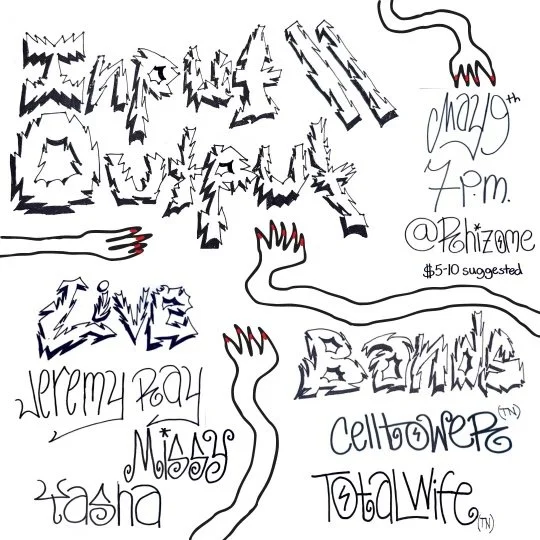 Input \\
Output
May 9th
7 p.m.
@Rhizome
$5-10 suggested
LiVE
Jeremy Ray
Missy
Tasha
Bands
CelltoweR (TN)
Total Wife (TN)